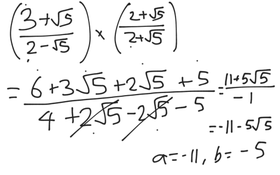 (3+√5 / 2-√5) × (2+√5 / 2+√5)
= 6+3√5+2√5+5 / 4+2√5-2√5-5 = 11+5√5 / -1
= -11-5√5
a=-11, b=-5